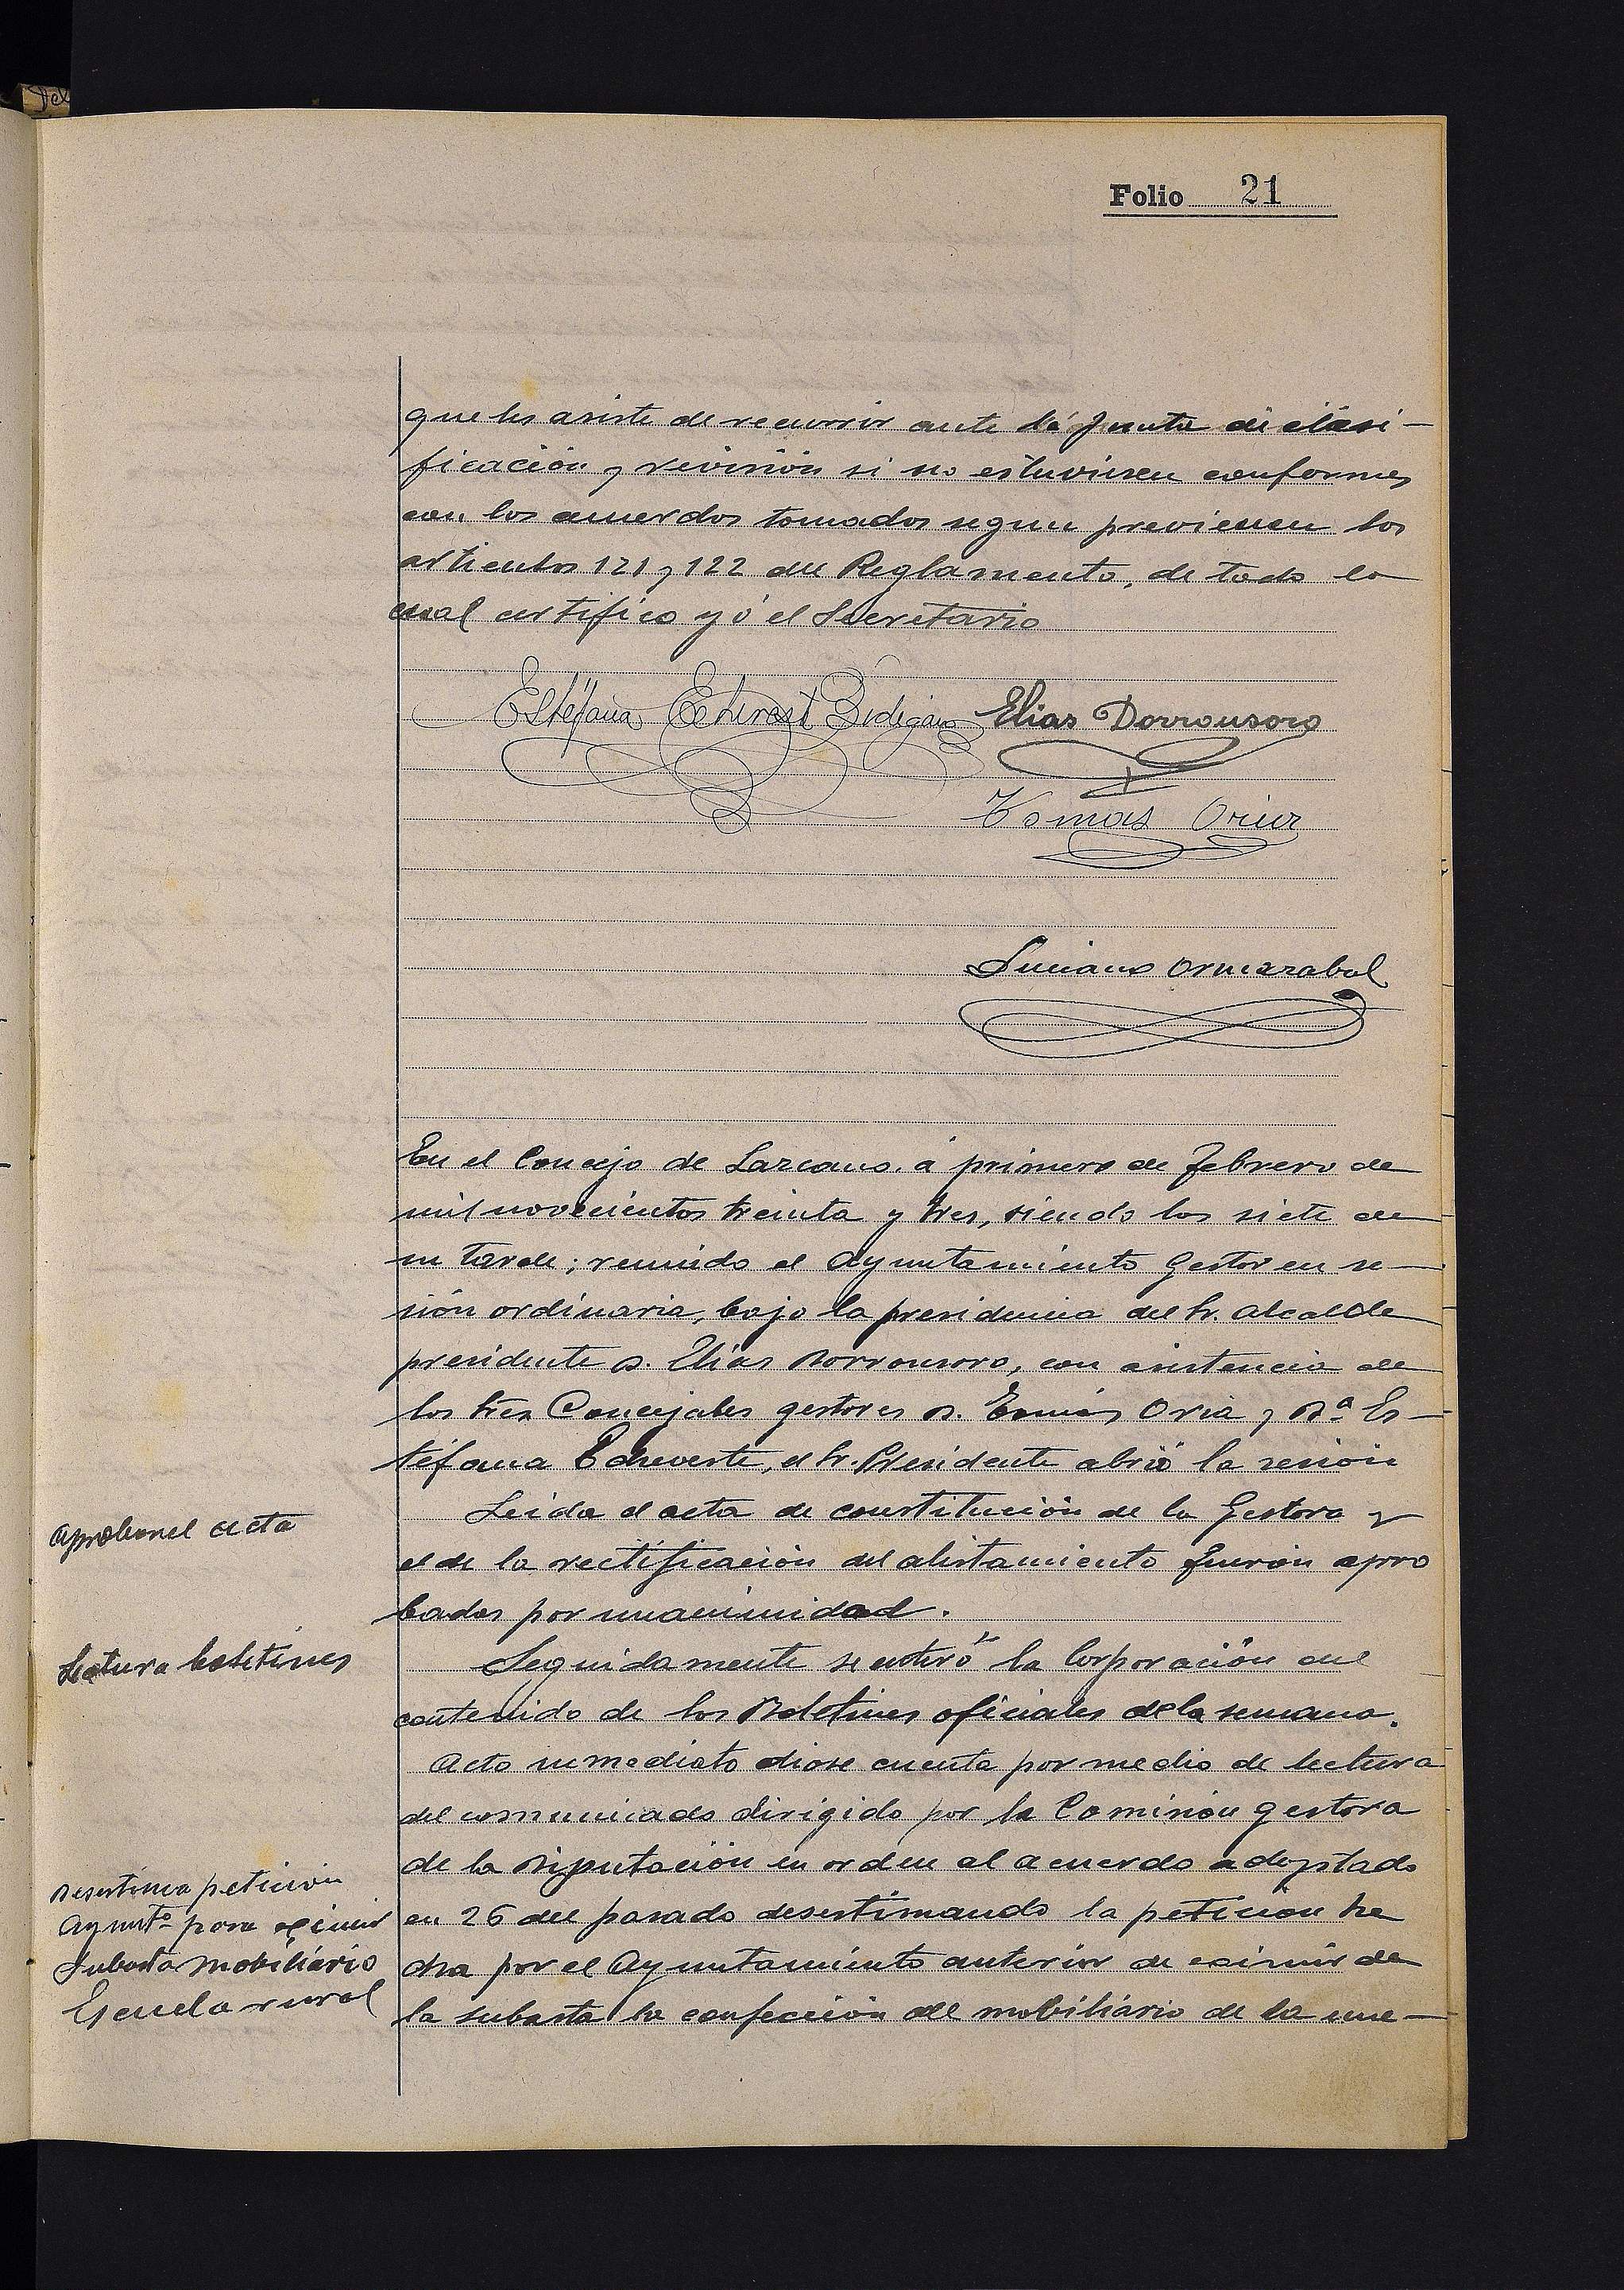 Folio 21
que les asiste de recurrir ante la Junta de clasi-
ficación y revisión si no estuviesen conformes
con los acuerdos tomados segun previenen los
articulos 121 y 122 del Reglamento, de todo lo
cual certifico yó el Secretario
Estéfana Echeveste Elias Dorronsoro
Tomas Oria
Luciano Ormazabal
En el Concejo de Lazcano á primero de Febrero de
mil novecientos treinta y tres, siendo las siete de
su tarde; reunido el Ayuntamiento Gestor en se-
sión ordinaria, bajo la presidencia del Sr. Alcalde
presidente D. Elias Dorronsoro, con asistencia de
los tres Concejales gestores D. Tomás Oria y Dª Es-
téfana Echeveste, el Sr. Presidente abrió la sesión
Aprobar el acta
Leida el acta de constitución de la Gestora y
el de la rectificación del alistamiento fuerón apro
bados por unanimidad.
Lectura boletines
Seguidamente se enteró la Corporación del
contenido de los Boletines oficiales de la semana.
Acto inmediato diose cuenta por medio de lectura
del comunicado dirigido por la Comisión gestora
de la Diputación en orden al acuerdo adoptado
Desestima petición
Ayuntº para eximir
Subasta mobiliario
Escuela rural
en 26 del pasado desestimando la petición he
cha por el Ayuntamiento anterior de eximir de
la subasta la confección del mobiliario de la nue-